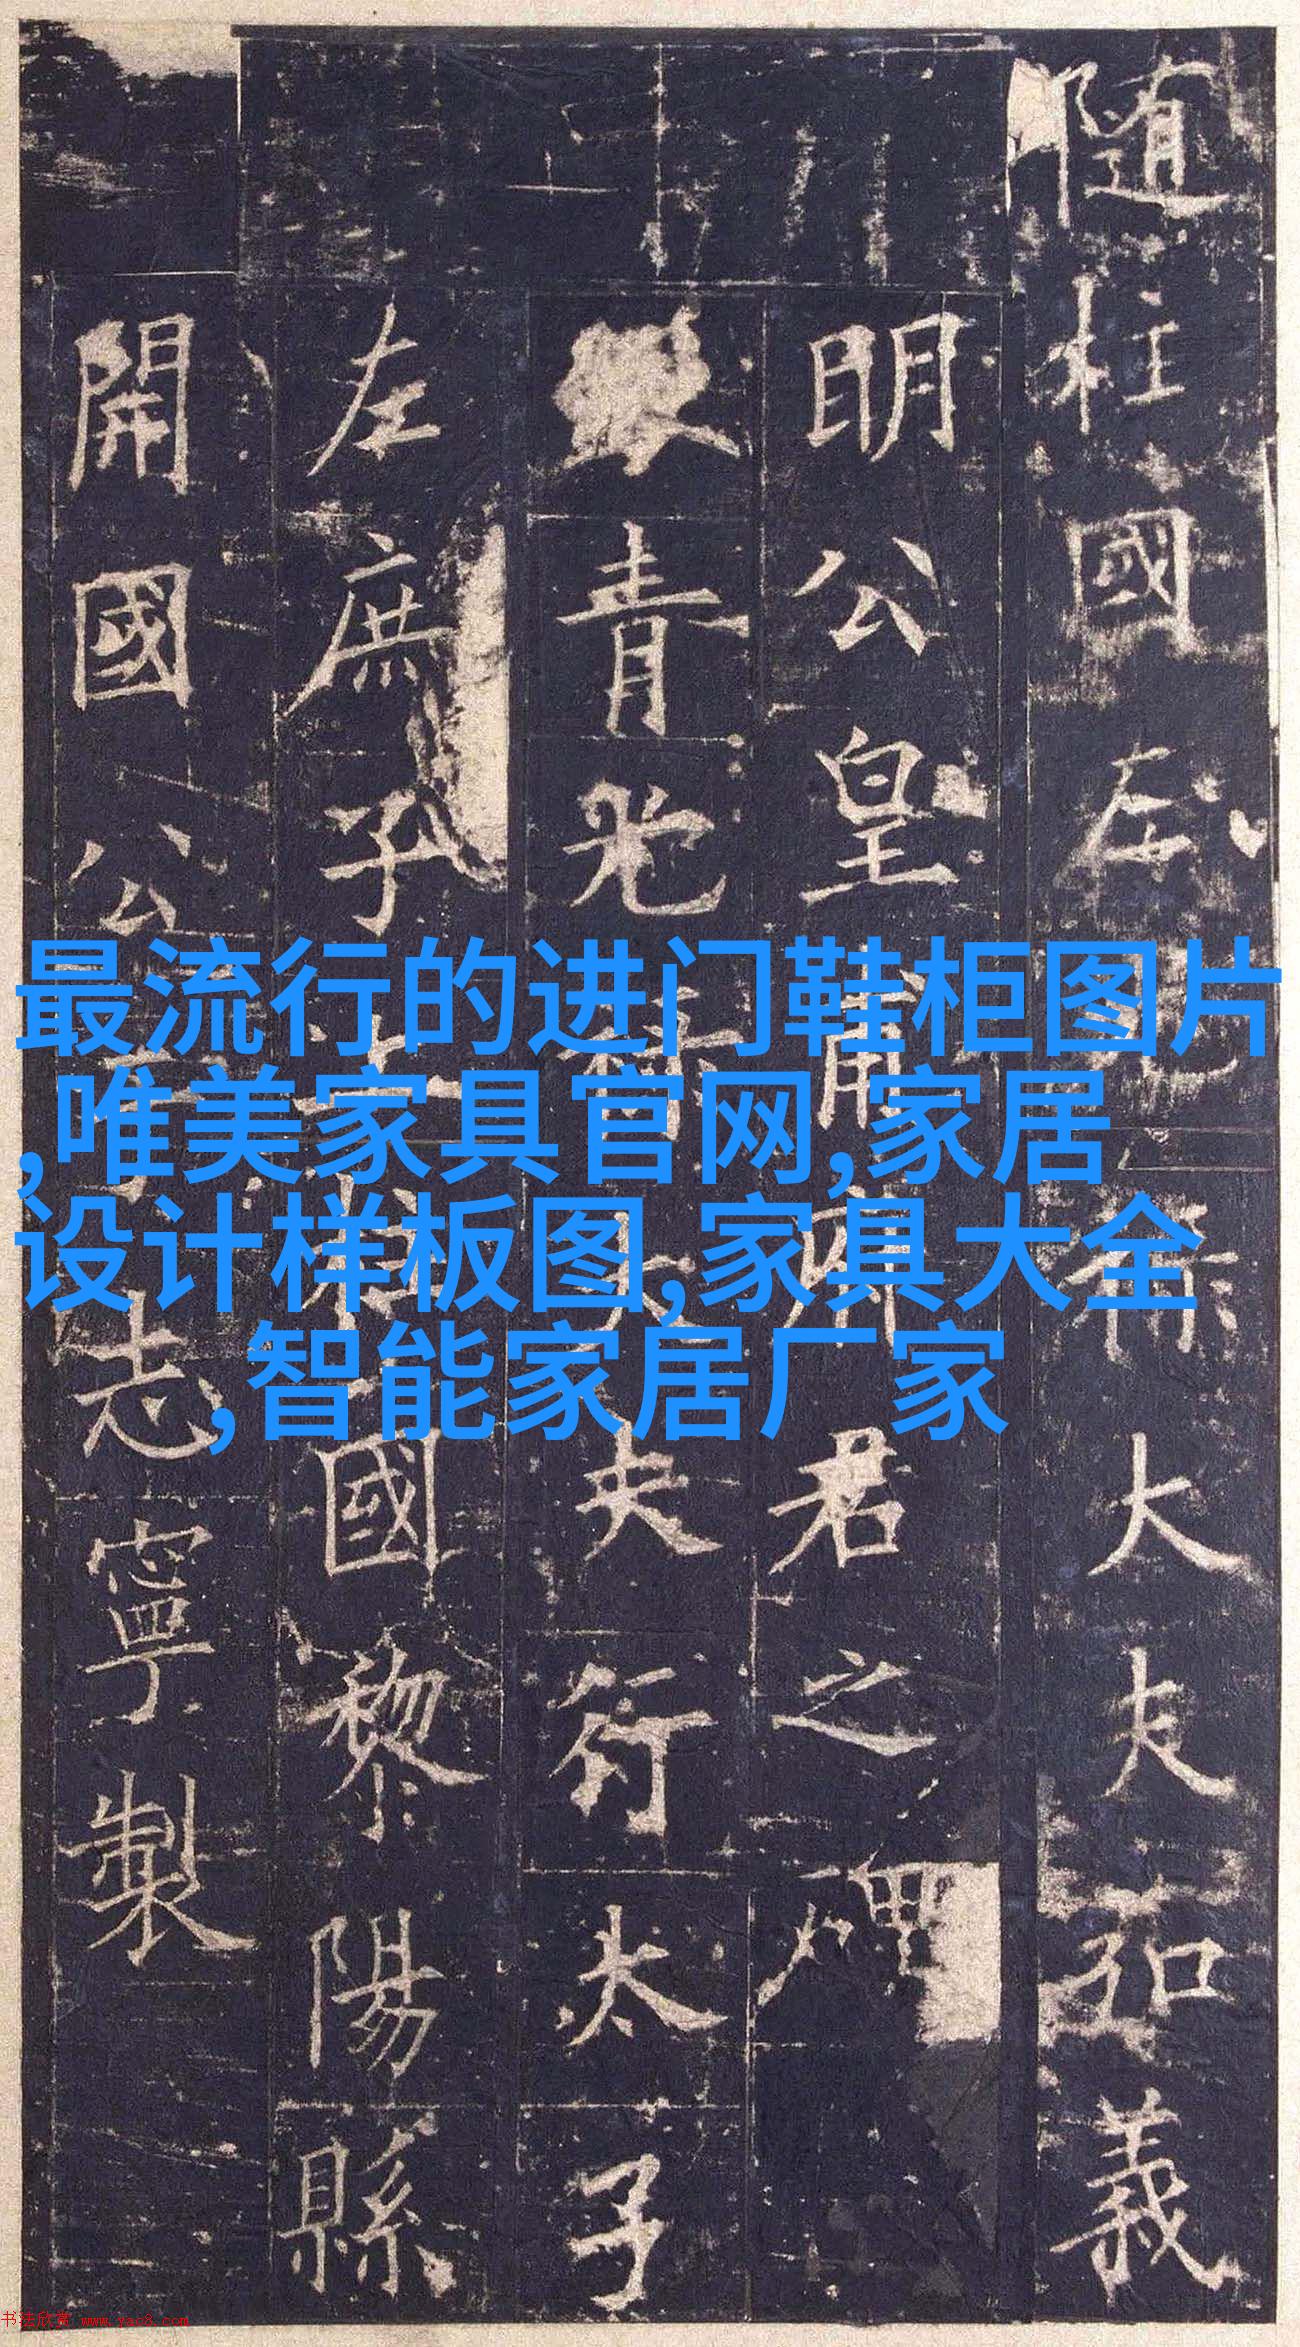 隨柱國左光祿大夫弘義
明公皇甫府君之碑
青光祿大夫行太子
左庶子上柱國黎陽縣
開國公于志寧製
最流行的进门鞋柜图片
,唯美家具官网,家居
设计样板图,家具大全
,智能家居厂家
书法欣赏 www.yac8.com